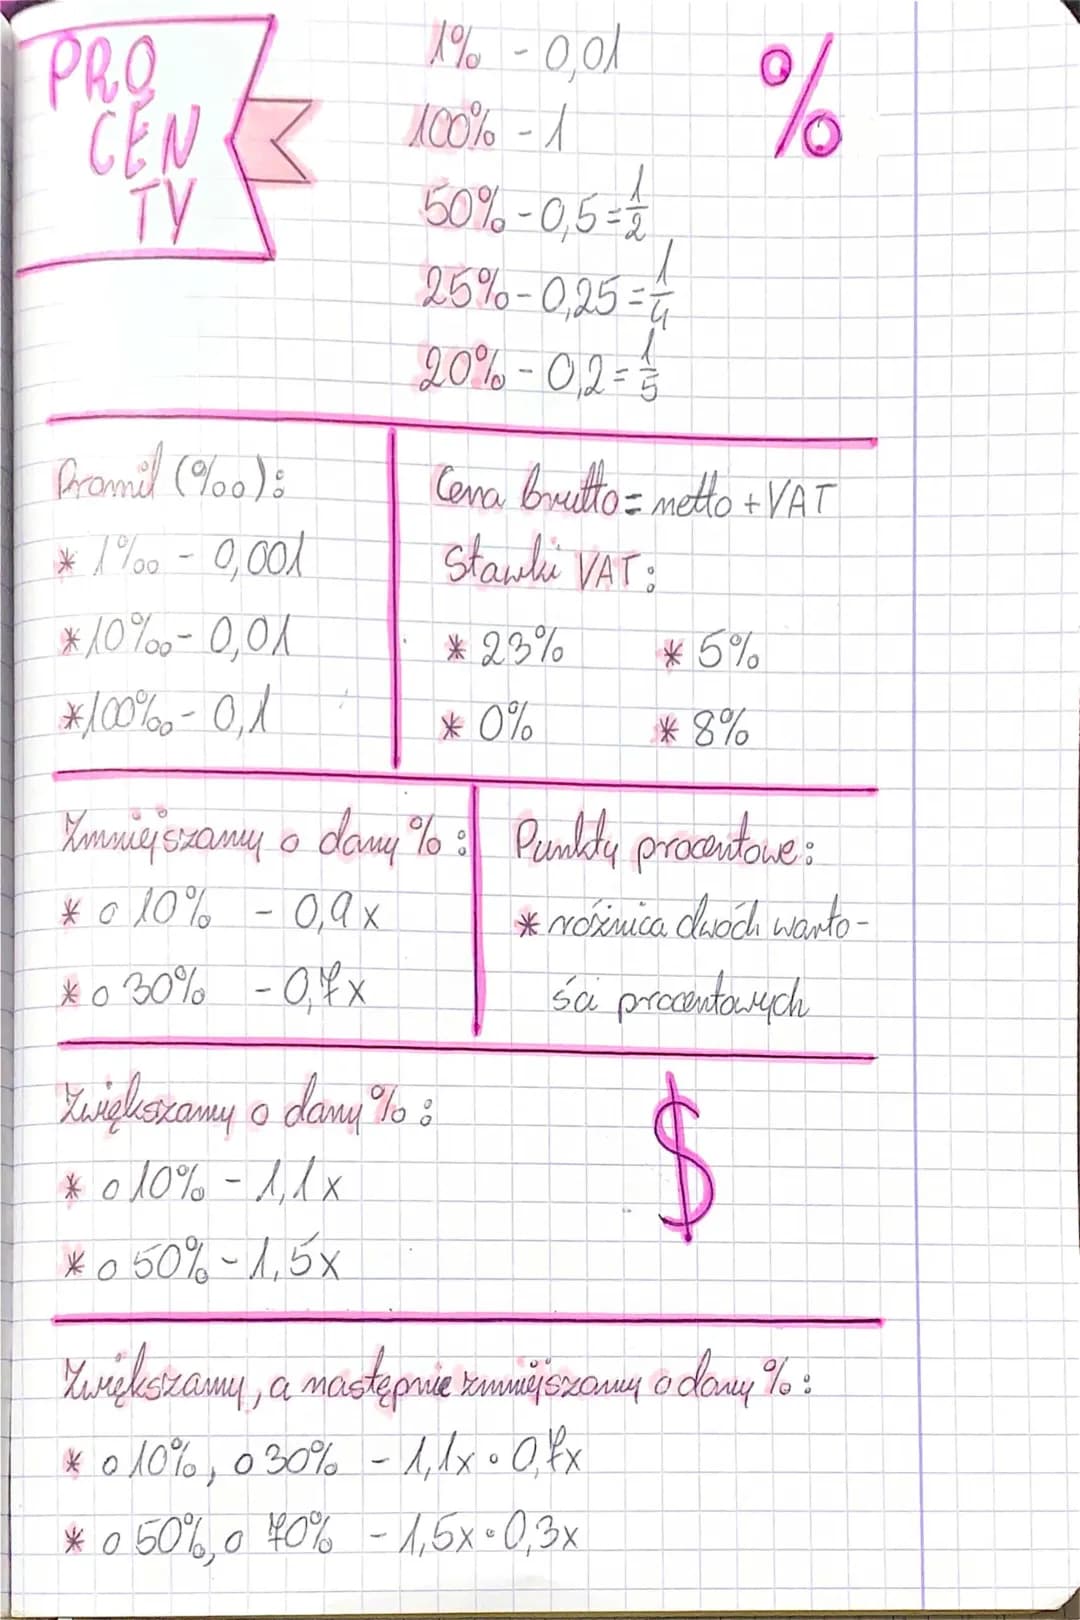 PRO
CEN
TY
%
1% - 0,01
100% - 1
50% - 0,5 = 1/2
25% - 0,25 = 1/4
20% - 0,2 = 1/5
Promil (‰):
* 1‰ - 0,001
* 10‰ - 0,01
* 100‰ - 0,1
Cena brutto = netto + VAT
Stawki VAT:
* 23% * 5%
* 0% * 8%
Zmniejszamy o dany %:
* o 10% - 0,9x
* o 30% - 0,7x
Punkty procentowe:
* różnica dwóch warto-
ści procentowych
Zwiększamy o dany %:
* o 10% - 1,1x
* o 50% - 1,5x
$
Zwiększamy, a następnie zmniejszamy o dany %:
* o 10%, o 30% - 1,1x · 0,7x
* o 50%, o 70% - 1,5x · 0,3x